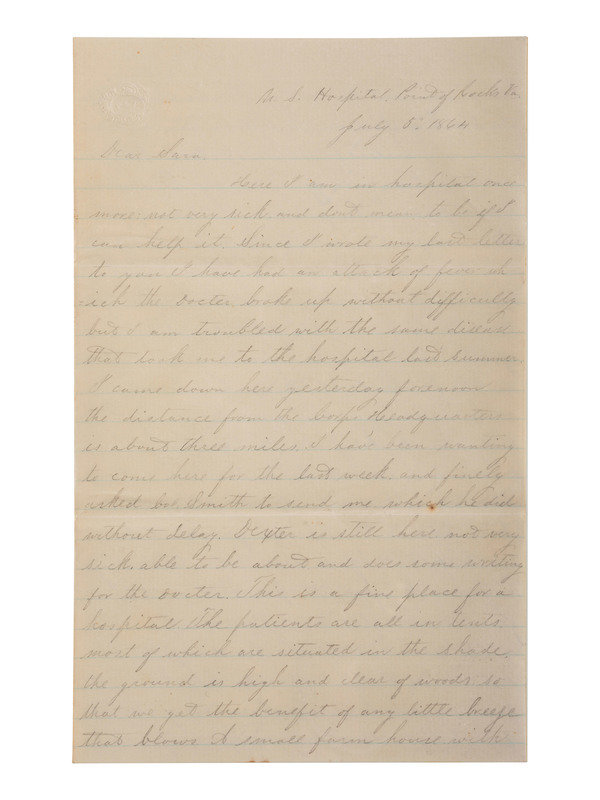 U. S. Hospital, Point of Rocks Va.
July 8th 1864
Dear Sara.
Here I am in hospital once
more: not very sick and dont mean to be if I
can help it. Since I wrote my last letter
to you I have had an attack of fever wh
ich the Docter broke up without difficulty
but I am troubled with the same disease
that took me to the hospital last summer.
I came down here yesterday forenoon
the distance from the Corps Headquarters
is about three miles. I have been wanting
to come here for the last week and finely
asked Smith to send me which he did
without delay. Dexter is still here not very
sick. able to be about and does some writing
for the Docter. This is a fine place for a
hospital. The patients are all in tents
most of which are situated in the shade.
the ground is high and clear of woods so
that we get the benefit of any little breeze
that blows A small farm house with